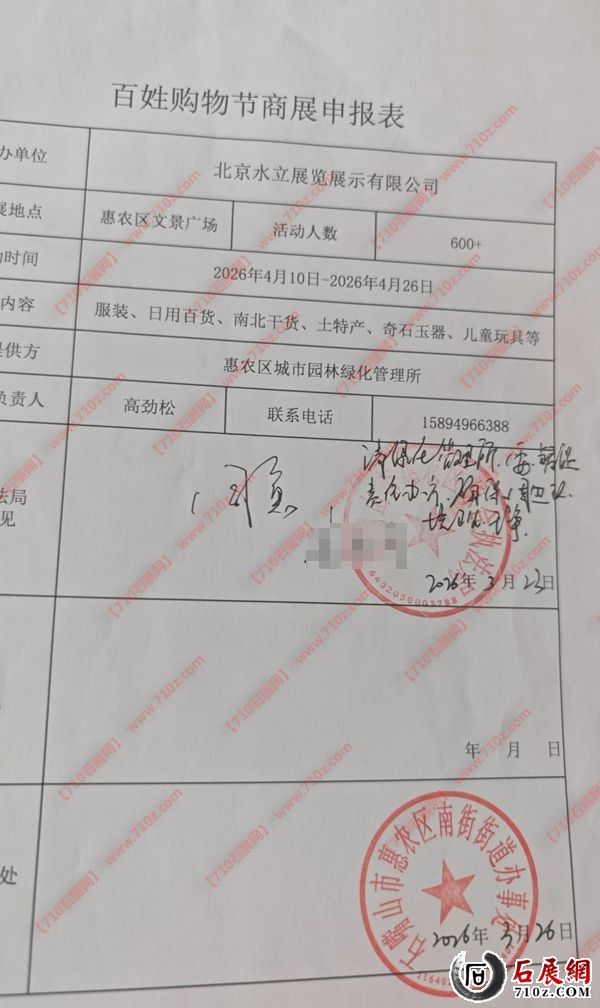 百姓购物节商展申报表
办单位 北京水立展览展示有限公司
展地点 惠农区文景广场 活动人数 600+
时间 2026年4月10日-2026年4月26日
内容 服装、日用百货、南北干货、土特产、奇石玉器、儿童玩具等
提供方 惠农区城市园林绿化管理所
负责人 高劲松 联系电话 15894966388
法局
见
请绿化管理所
境 干净.
6402050003788
2026年3月23日
年 月 日
处
石嘴山市惠农区南街街道办事处
2026年3月26日
【710石展网】 www.710z.com
石展網
710z.com